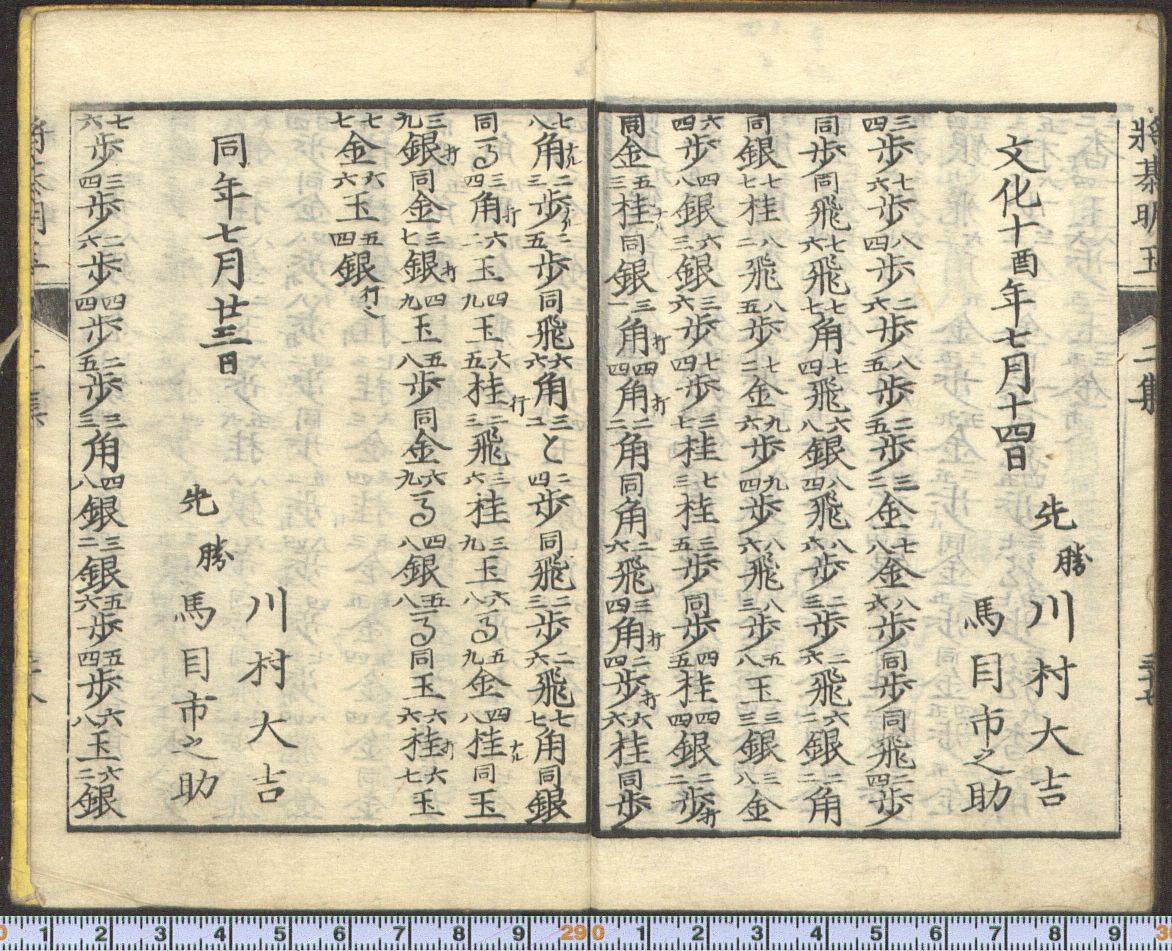 將棊明玉 二集
文化十酉年七月十四日
先勝 川村大吉
馬目市之助
三四歩 七六歩 八四歩 二六歩 八五歩 二五歩 三二金 七八金 八六歩 同歩 同飛 二四歩
同歩 同飛 七六飛 七七角 七四飛 六八銀 八四飛 八六歩 二三歩 二六飛 六二銀 二二角
同銀 七七桂 八二飛 八五歩 七二金 九六歩 九四歩 八六飛 八三歩 五八玉 三三銀 三八金
六四歩 四八銀 六三銀 三六歩 七四歩 三七桂 七三桂 三五歩 同歩 四五桂 四四銀 二二歩打
同金 五三桂ナル 同銀 三一角打 四四角打 二二角 同角 二六飛 三四角打 二四歩打 六六桂 同歩
七八角ナル 二三歩ナル 二五歩 同飛 六六角 三二と 二四歩 同飛 二三歩 二六飛 七七角 同銀
同馬 三四角打 六二玉 四九玉 六五桂打 二二飛 三六桂 三九玉 六八馬 五九金 四八桂ナル 同玉
三九銀打 同金 三七銀打 四九玉 五八歩 同金 六九馬 四八銀 五八馬 同玉 六六桂打 六七玉
七七金 六六玉 五四銀
同年七月廿三日
川村大吉
先勝 馬目市之助
七六歩 三四歩 二六歩 四四歩 二五歩 三三角 四八銀 三二銀 五六歩 五四歩 六八玉 六二銀
0 1 2 3 4 5 6 7 8 9 290 1 2 3 4 5 6 7 8 9